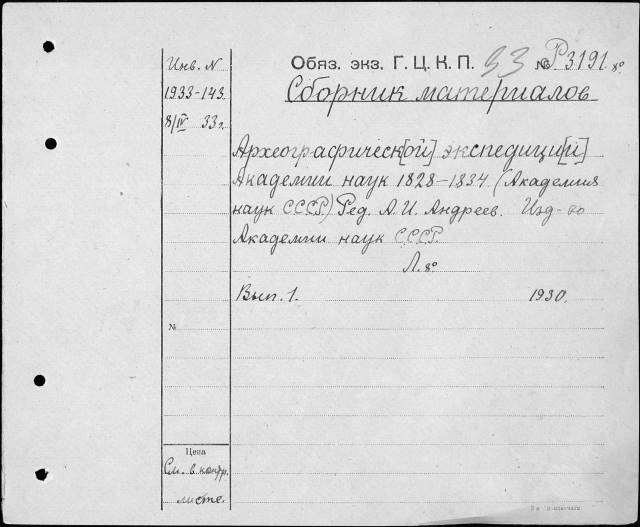 Инв. N
1933-143
8/IV 33 г.
Обяз. экз. Г. Ц. К. П. 33 № Р3191 8º
Сборник материалов
Археографическ[ой] экспедици[й]
Академии наук 1828—1834 (Академия
наук СССР) Ред. А. И. Андреев. Изд-во
Академии наук СССР.
Л. 8º
Вып. 1. 1930.
№
Цена
См. в контр.
листе.